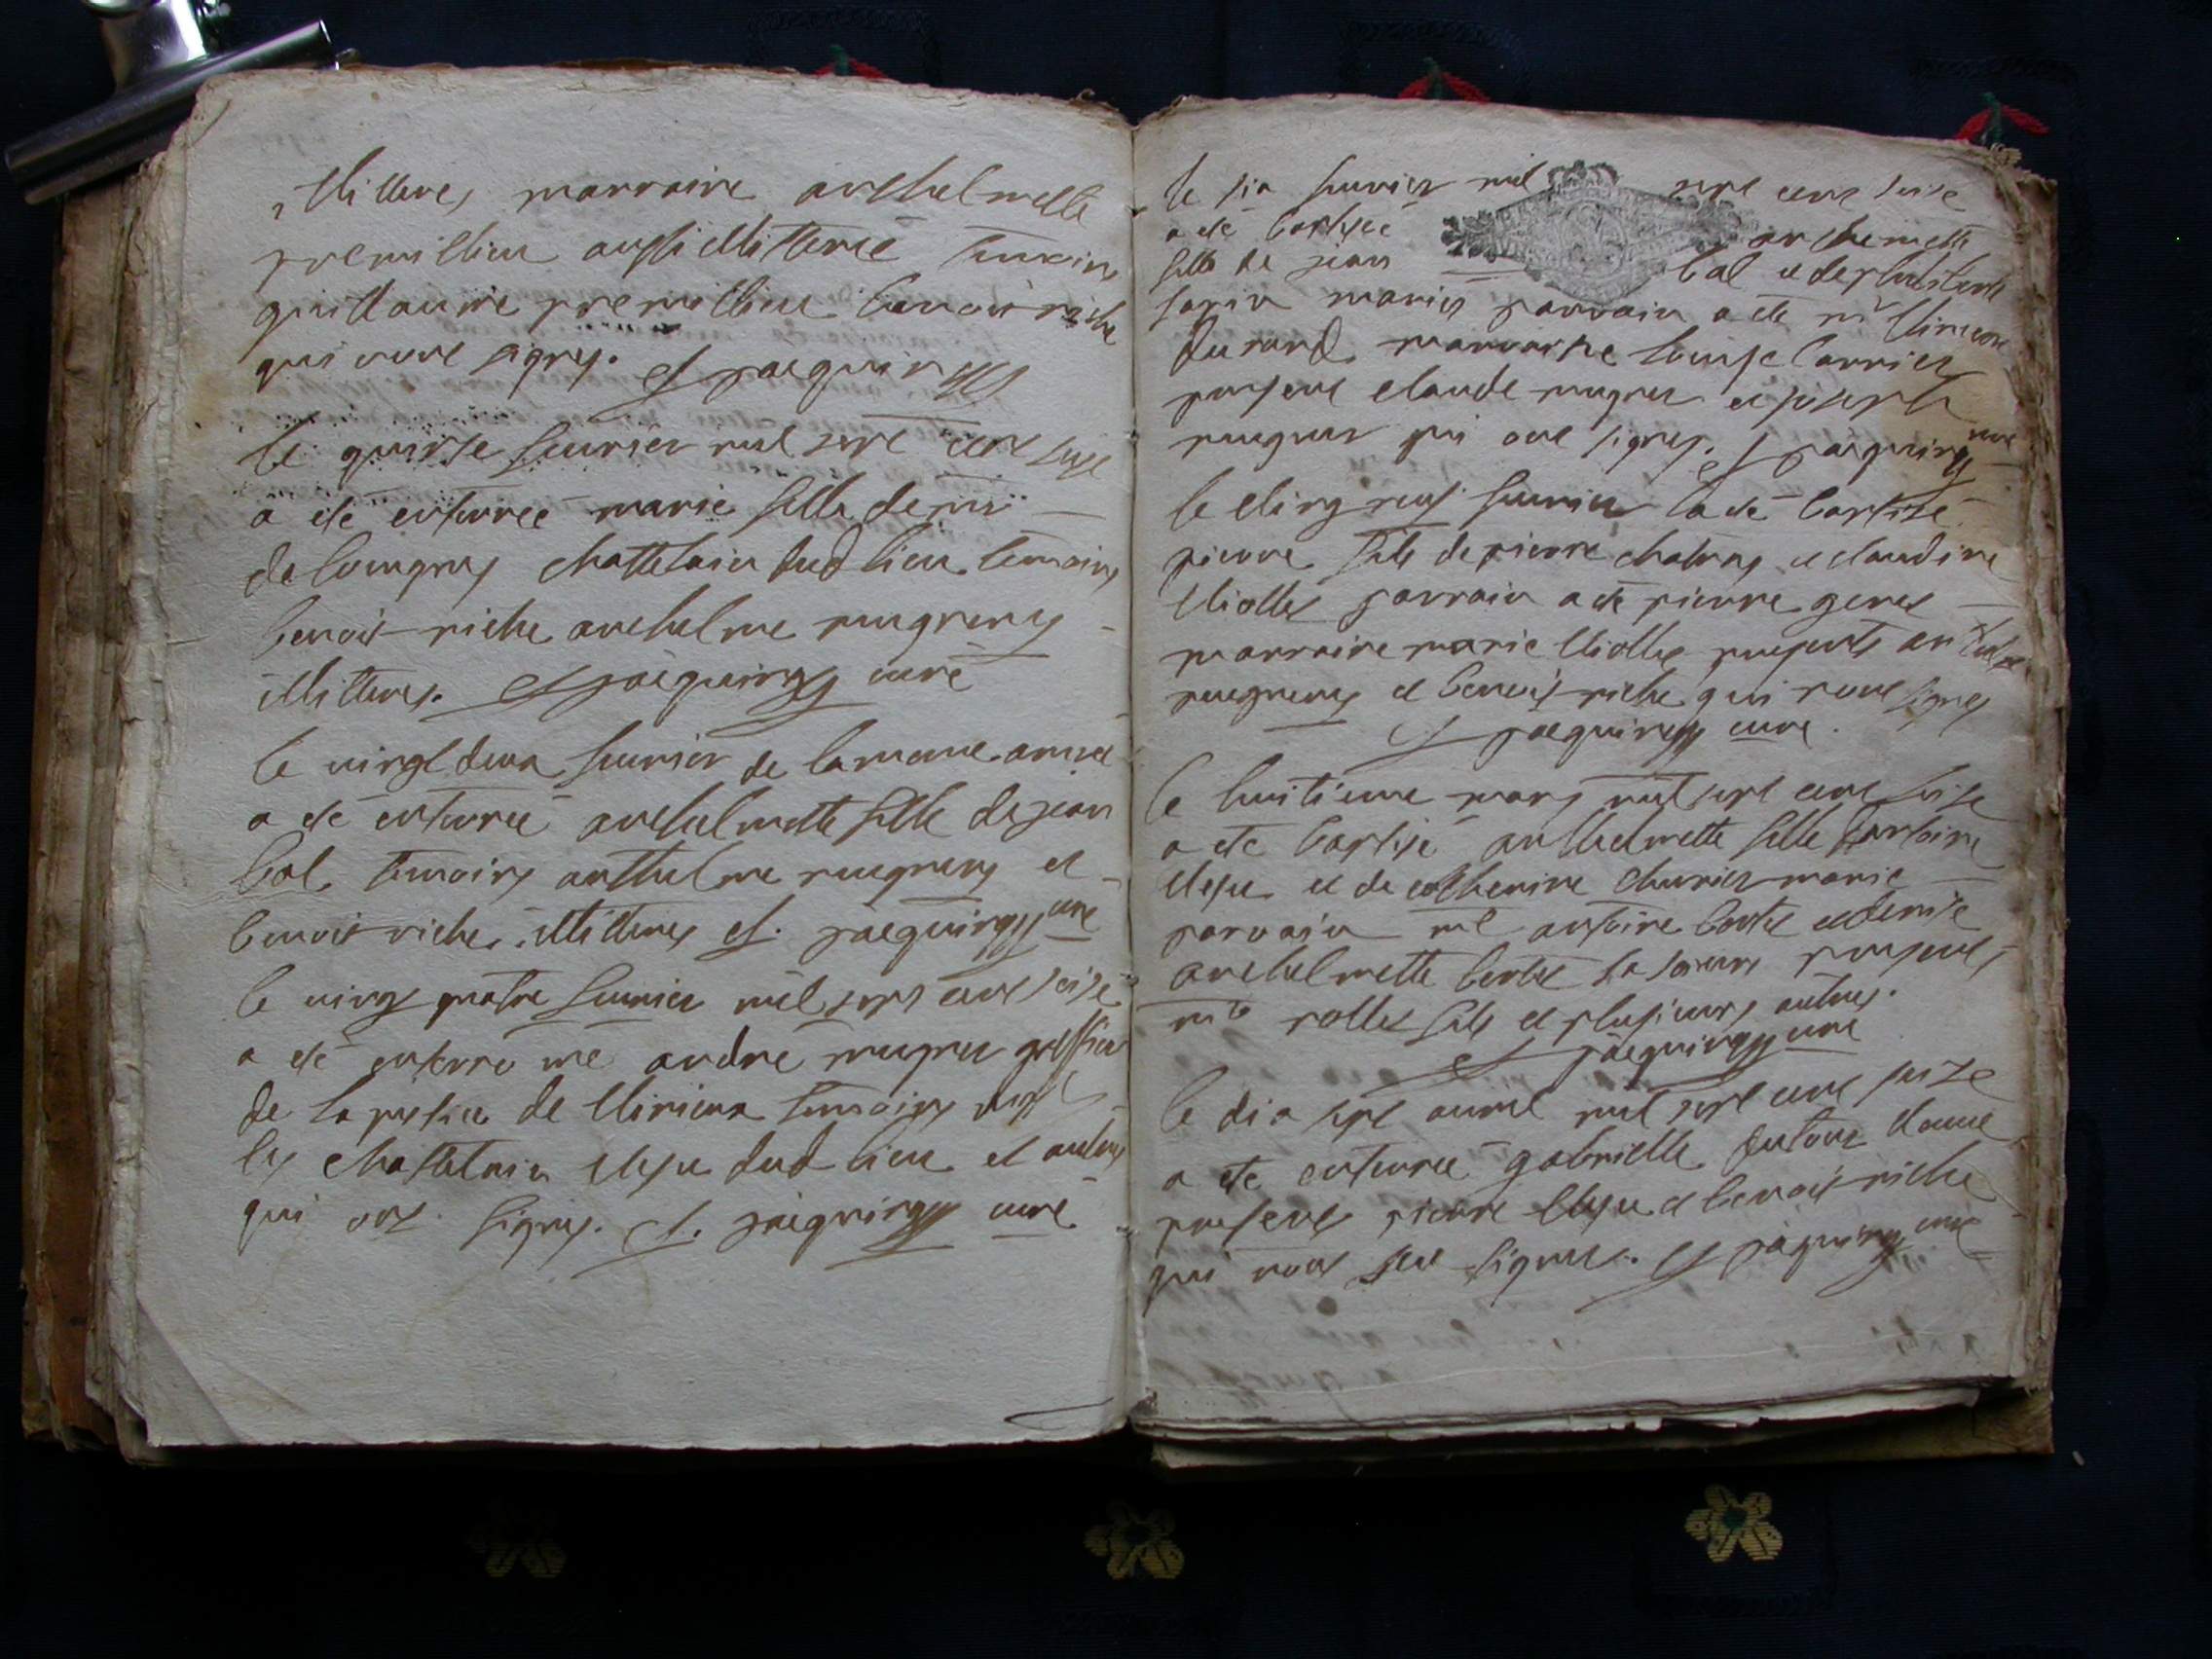 illitteres, marraine anthelmette
premillieu aussi illitteree temoins
guillaume premillieu benoit riche
qui n'ont signes. J jacquin
le quinse feuvrier mil sept cent seise
a eté enterreé marie fille de mr
de longres chattelain dud lieu temoins
benoit riche anthelme mugneny
illitteres. J jacquin curé
le vingt deux feuvrier de la meme anneé
a eté enterreé anthelmette fille de jean
bal temoins anthelme mugneny et
benoit riche illitteres J. jacquin curé
le vingt quatre feuvrier mil sept cent seise
a eté enterré me andre mugnier greffier
de la justice de temoins
les chattelain dud lieu et autres
qui ont signes. J. jacquin curé
le six feuvrier mil sept cent seise
a eté baptiseé anthelmette
fille de jean bal et de
mariés parrain a eté mr
durand marraine louise carrier
present claude mugnier et joseph
mugnier qui ont signes. J jacquin curé
le vingt neuf feuvrier a eté baptisé
pierre fils de pierre et claudine
violles parrain a eté pierre
marraine marie violles presents anthelme
mugneny et benoit riche qui n'ont signes
J jacquin curé.
le huitieme mars mil sept cent seise
a eté baptisé anthelmette fille d'antoine
et de catherine mariés
parrain me antoine et demise
anthelmette sa soeur presents
me fils et plusieurs autres.
J jacquin curé
le dix sept avril mil sept cent seize
a eté enterreé gabrielle
presents pierre et benoit riche
qui n'ont sceu signer. J jacquin curé